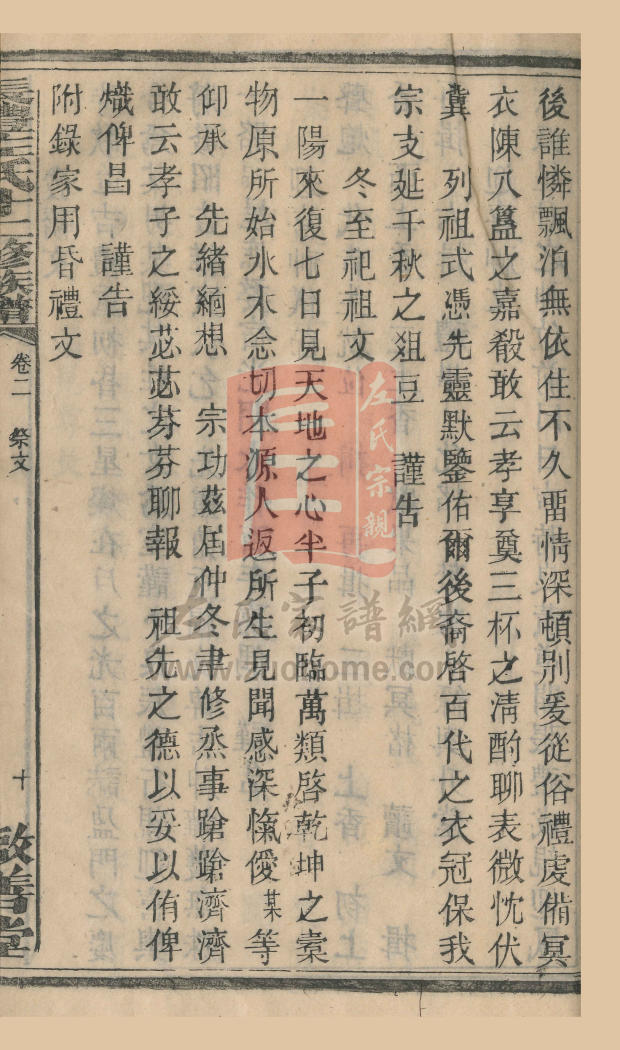 後誰憐飄泊無依住不久畱情深頓別爰從俗禮虔備冥
衣陳八簋之嘉殽敢云孝享奠三杯之清酌聊表微忱伏
冀　列祖式憑先靈默鑒佑爾後裔啓百代之衣冠保我
宗支延千秋之俎豆　謹告
冬至祀祖文
一陽來復七日見天地之心半子初臨萬類啓乾坤之橐
物原所始水木念切本源人返所生見聞感深愾僾某等
仰承　先緒緬想　宗功茲屆仲冬聿修烝事蹌蹌濟濟
敢云孝子之綏苾苾芬芬聊報　祖先之德以妥以侑俾
熾俾昌　謹告
附錄家用昏禮文
左氏十二修族譜
卷二　祭文
十
敬善堂
左氏宗親
左氏家譜網
www.zuohome.com